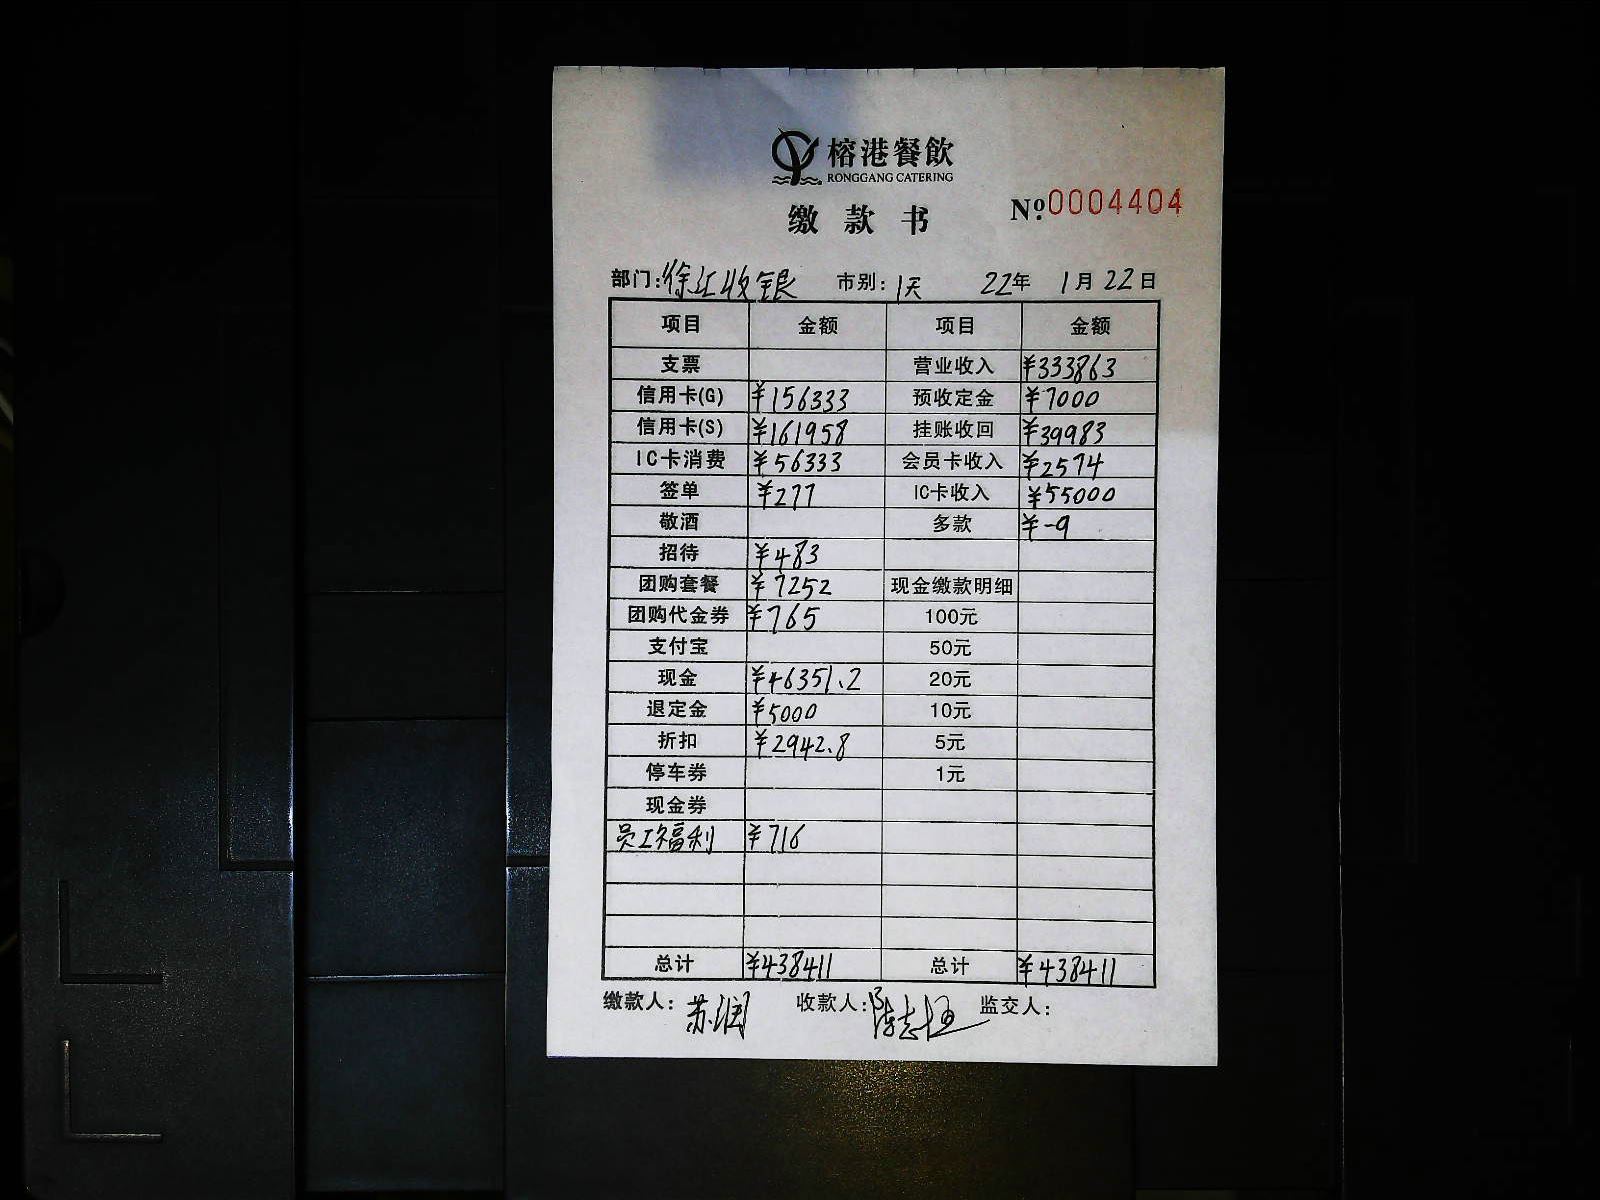 榕港餐飲
RONGGANG CATERING
缴款书
№0004404
部门:徐汇收银 市别:1天 22年 1月22日
项目 金额 项目 金额
支票 营业收入 ¥333863
信用卡(G) ¥156333 预收定金 ¥7000
信用卡(S) ¥161958 挂账收回 ¥39983
IC卡消费 ¥56333 会员卡收入 ¥2574
签单 ¥277 IC卡收入 ¥55000
敬酒 多款 ¥-9
招待 ¥483
团购套餐 ¥7252 现金缴款明细
团购代金券 ¥765 100元
支付宝 50元
现金 ¥46351.2 20元
退定金 ¥5000 10元
折扣 ¥2942.8 5元
停车券 1元
现金券
员工福利 ¥716
总计 ¥438411 总计 ¥438411
缴款人:苏润 收款人:陈志恒 监交人: